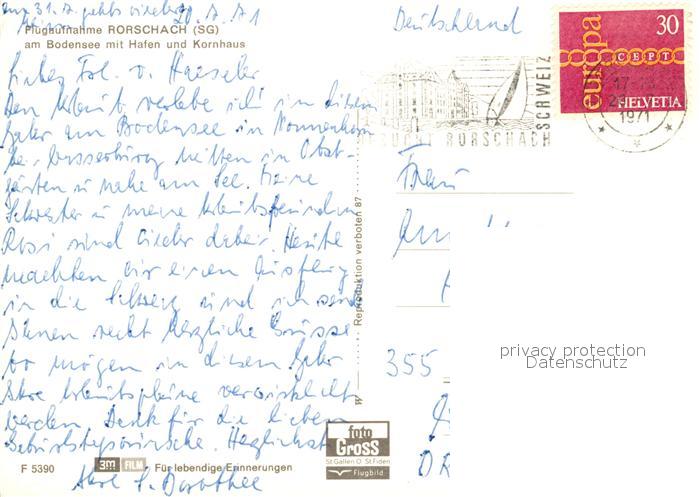 zum 31.7. gehts wieder
20.7.71
Flugaufnahme RORSCHACH (SG)
am Bodensee mit Hafen und Kornhaus
Liebes Frl. v. Haeseler
Den Urlaub verlebe ich in diesem
Jahr am Bodensee in Nonnenhorn
bei Wasserburg mitten in Obst-
gärten u nahe am See. Meine
Schwester u meine Urlaubsfreundin
Rosi sind wieder dabei. Heute
machten wir einen Ausflug
in die Schweiz und ich sende
Ihnen recht herzliche Grüsse
mögen in diesem Jahr
Ihre Urlaubspläne verwirklicht
werden. Dank für die lieben
Geburtstagswünsche. Herzlichst
Ihre S. Dorothee
F 5390 3M FILM Für lebendige Erinnerungen
Reproduktion verboten 87
foto
GROSS
St Gallen O. St Fiden
Flugbild
Deutschland
europa
30
CEPT
HELVETIA
1971
RORSCHACH
SCHWEIZ
Frau
355
privacy protection
Datenschutz